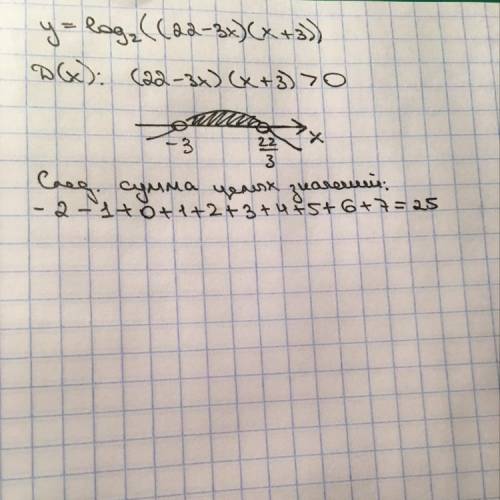 y = log₂((22-3x)(x+3))
D(x): (22-3x)(x+3)>0
-3 22/3 x
След. сумма целых значений:
-2-1+0+1+2+3+4+5+6+7=25